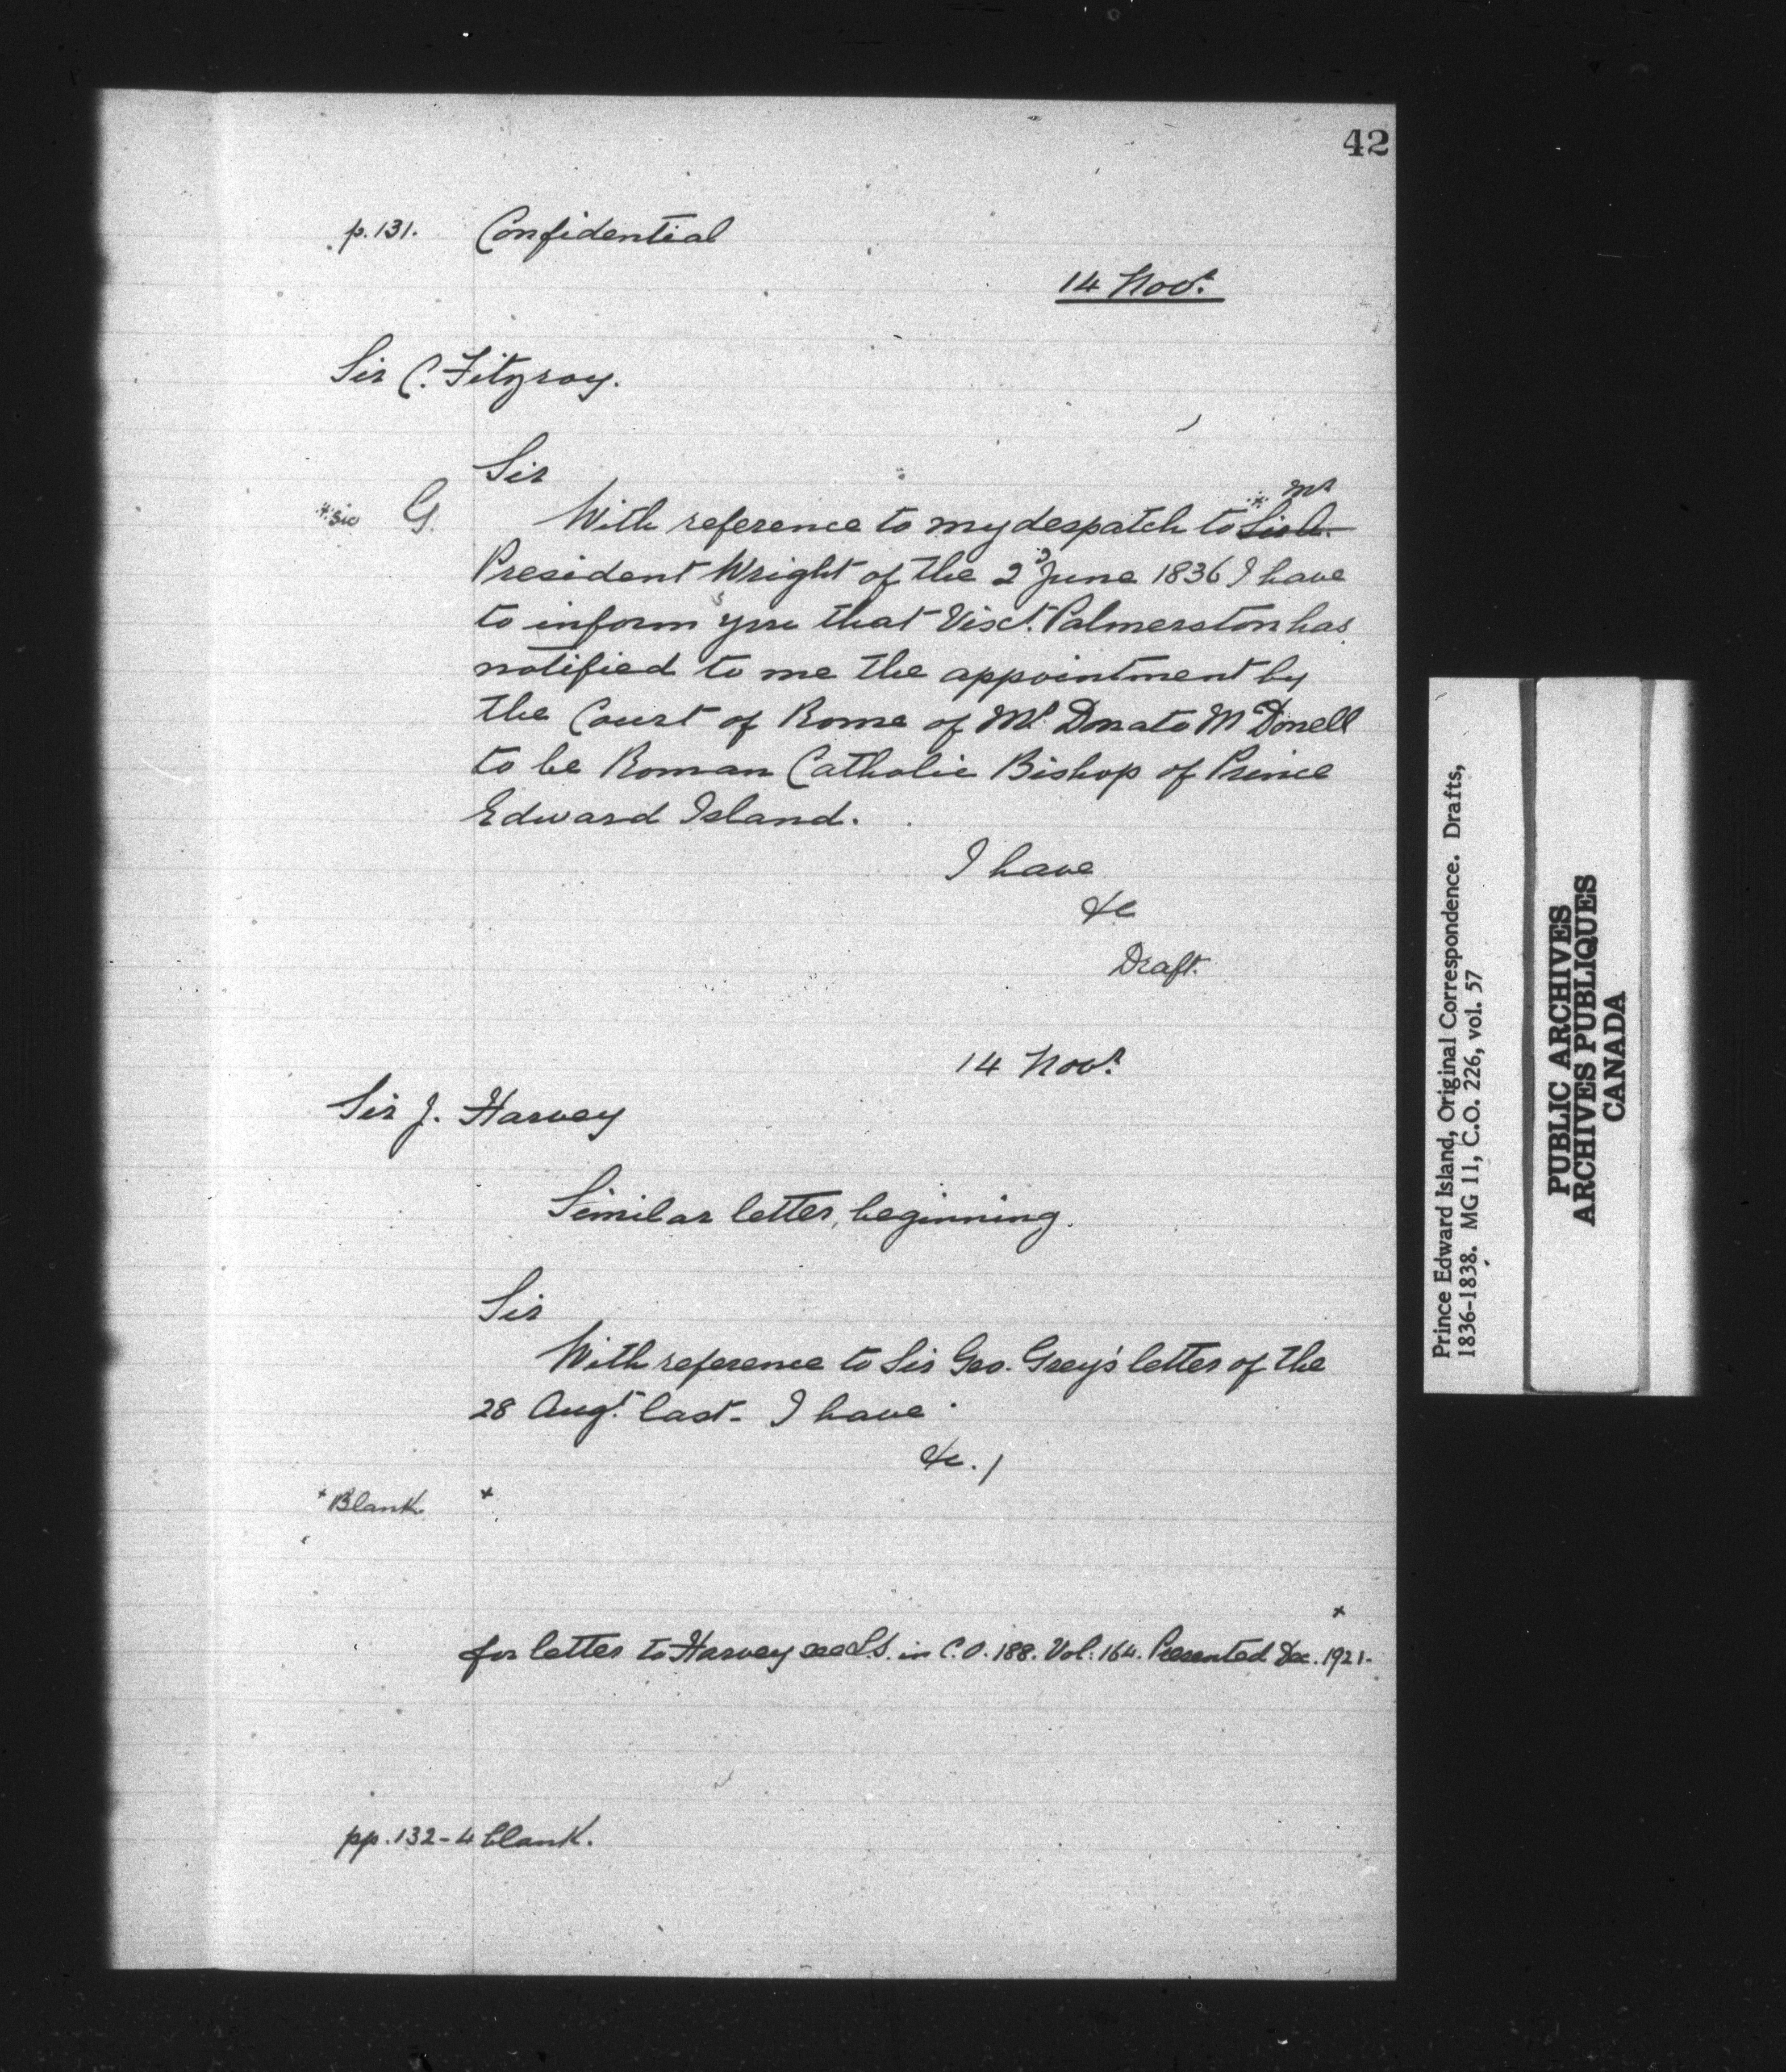 42
p. 131. Confidential
14 Novr.
Sir C. Fitzroy.
Sir
*sic G. With reference to my despatch to * Sir A. Mr
President Wright of the 2d June 1836 I have
to inform you that Visct. Palmerston has
notified to me the appointment by
the Court of Rome of Mr. Donato McDonell
to be Roman Catholic Bishop of Prince
Edward Island.
I have
&c
Draft.
14 Novr.
Sir J. Harvey
Similar letter, beginning.
Sir
With reference to Sir Geo. Grey's letter of the
28 Augt. last - I have
&c. /
x Blank x
x
for letter to Harvey see L.S. in C.O. 188. Vol. 164. Presented Dec. 1921.
pp. 132-4 blank.
Prince Edward Island, Original Correspondence. Drafts,
1836-1838. MG 11, C.O. 226, vol. 57
PUBLIC ARCHIVES
ARCHIVES PUBLIQUES
CANADA